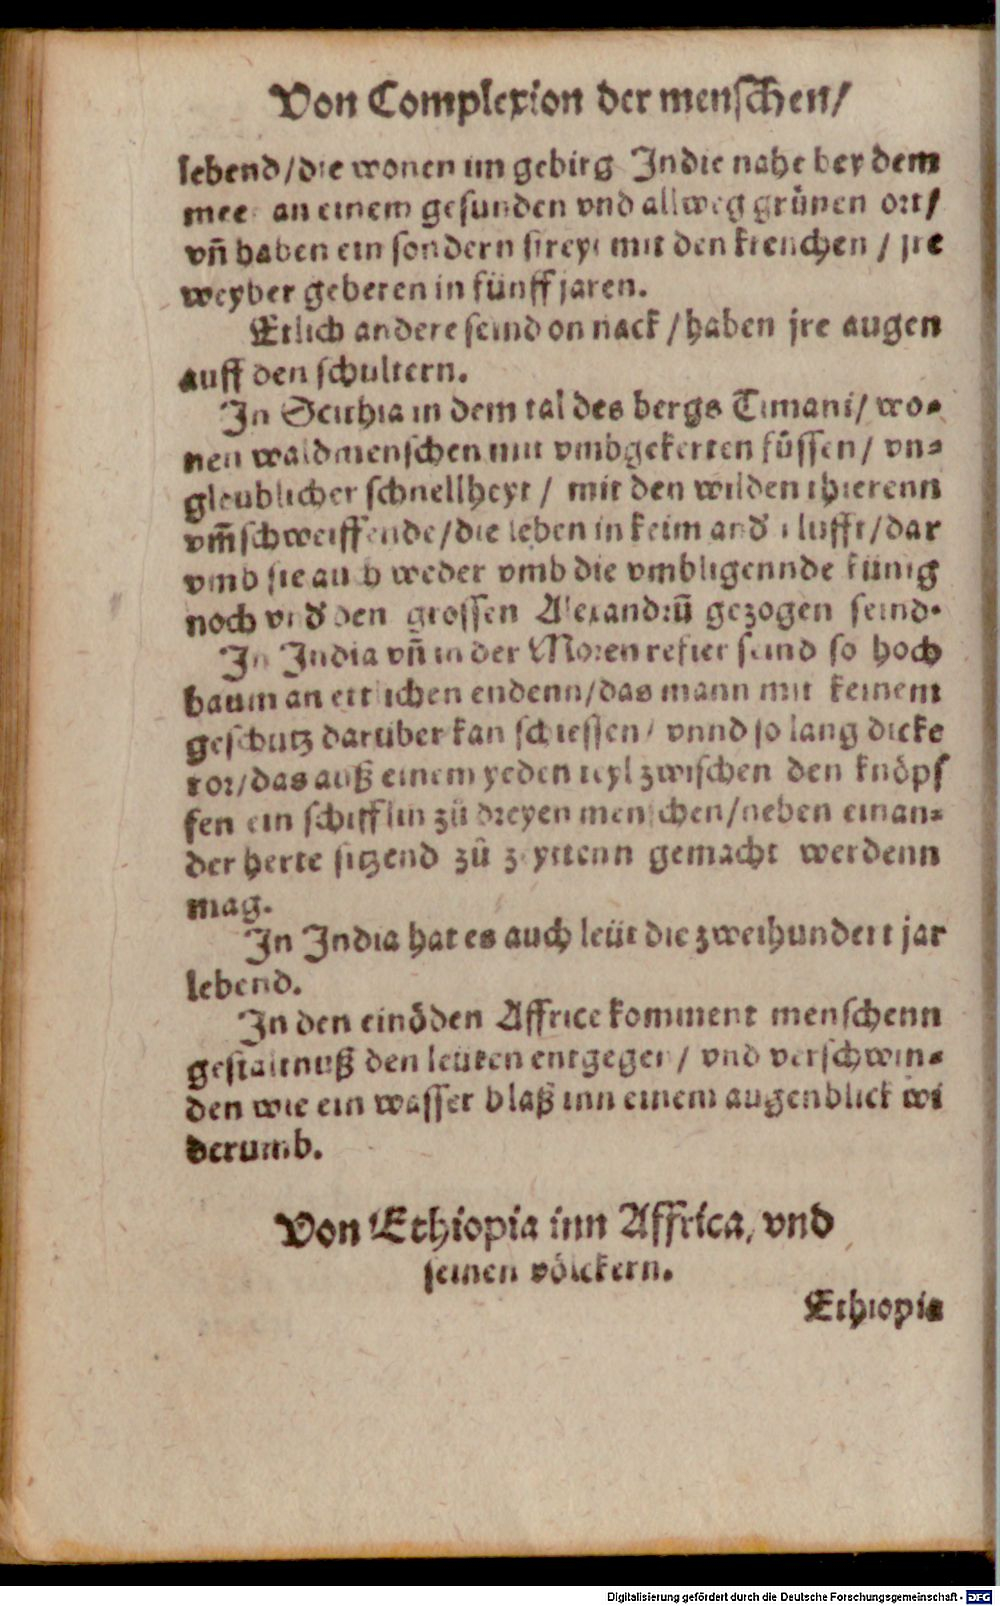 Von Complexion der menschen/
lebend/die wonen im gebirg Indie nahe bey dem
meer an einem gesunden vnd allweg grünen ort/
vñ haben ein sondern streyt mit den krenchen / jre
weyber geberen in fünff jaren.
Etlich andere seind on nack / haben jre augen
auff den schultern.
In Scithia in dem tal des bergs Timani/ wo-
nen waldmenschen mit vmbgekerten füssen/ vn-
gleublicher schnellheyt / mit den wilden thierenn
vm̃schweiffende/die leben in keim and lufft/dar
vmb sie auch weder vmb die vmbligennde künig
noch vnd den grossen Alexandrū gezogen seind.
In India vñ in der Moren refier seind so hoch
baum an ettlichen endenn/das mann mit keinem
geschutz darüber kan schiessen/ vnnd so lang dicke
ror/das auß einem yeden teyl zwischen den knöpf
fen ein schifflin zů dreyen menschen/neben einan-
der herte sitzend zů zeyttenn gemacht werdenn
mag.
In India hat es auch leüt die zweihundert jar
lebend.
In den einöden Affrice komment menschenn
gestaltnuß den leüten entgegen/ vnd verschwin-
den wie ein wasser blaß inn einem augenblick wi
derumb.
Von Ethiopia inn Affrica, vnd
seinen völckern.
Ethiopia
Digitalisierung gefördert durch die Deutsche Forschungsgemeinschaft - DFG